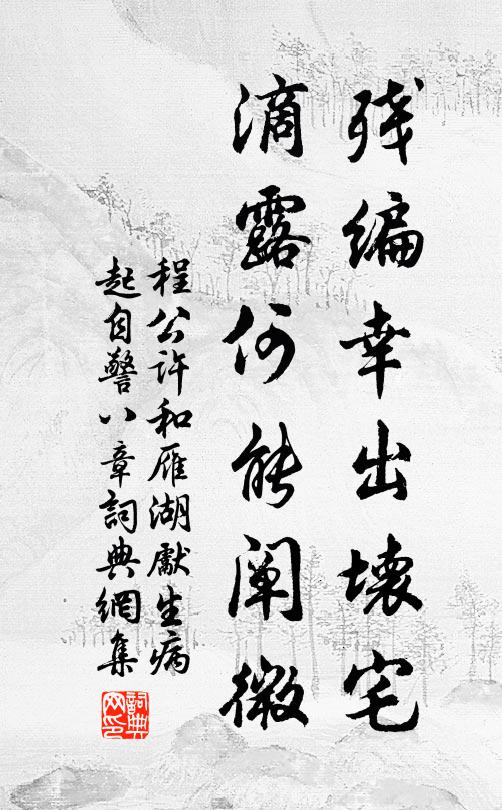 残编幸出壊宅
滴露何能阐微
程公许和雁湖獻生病
起自警八章詞典網集
詞典网印